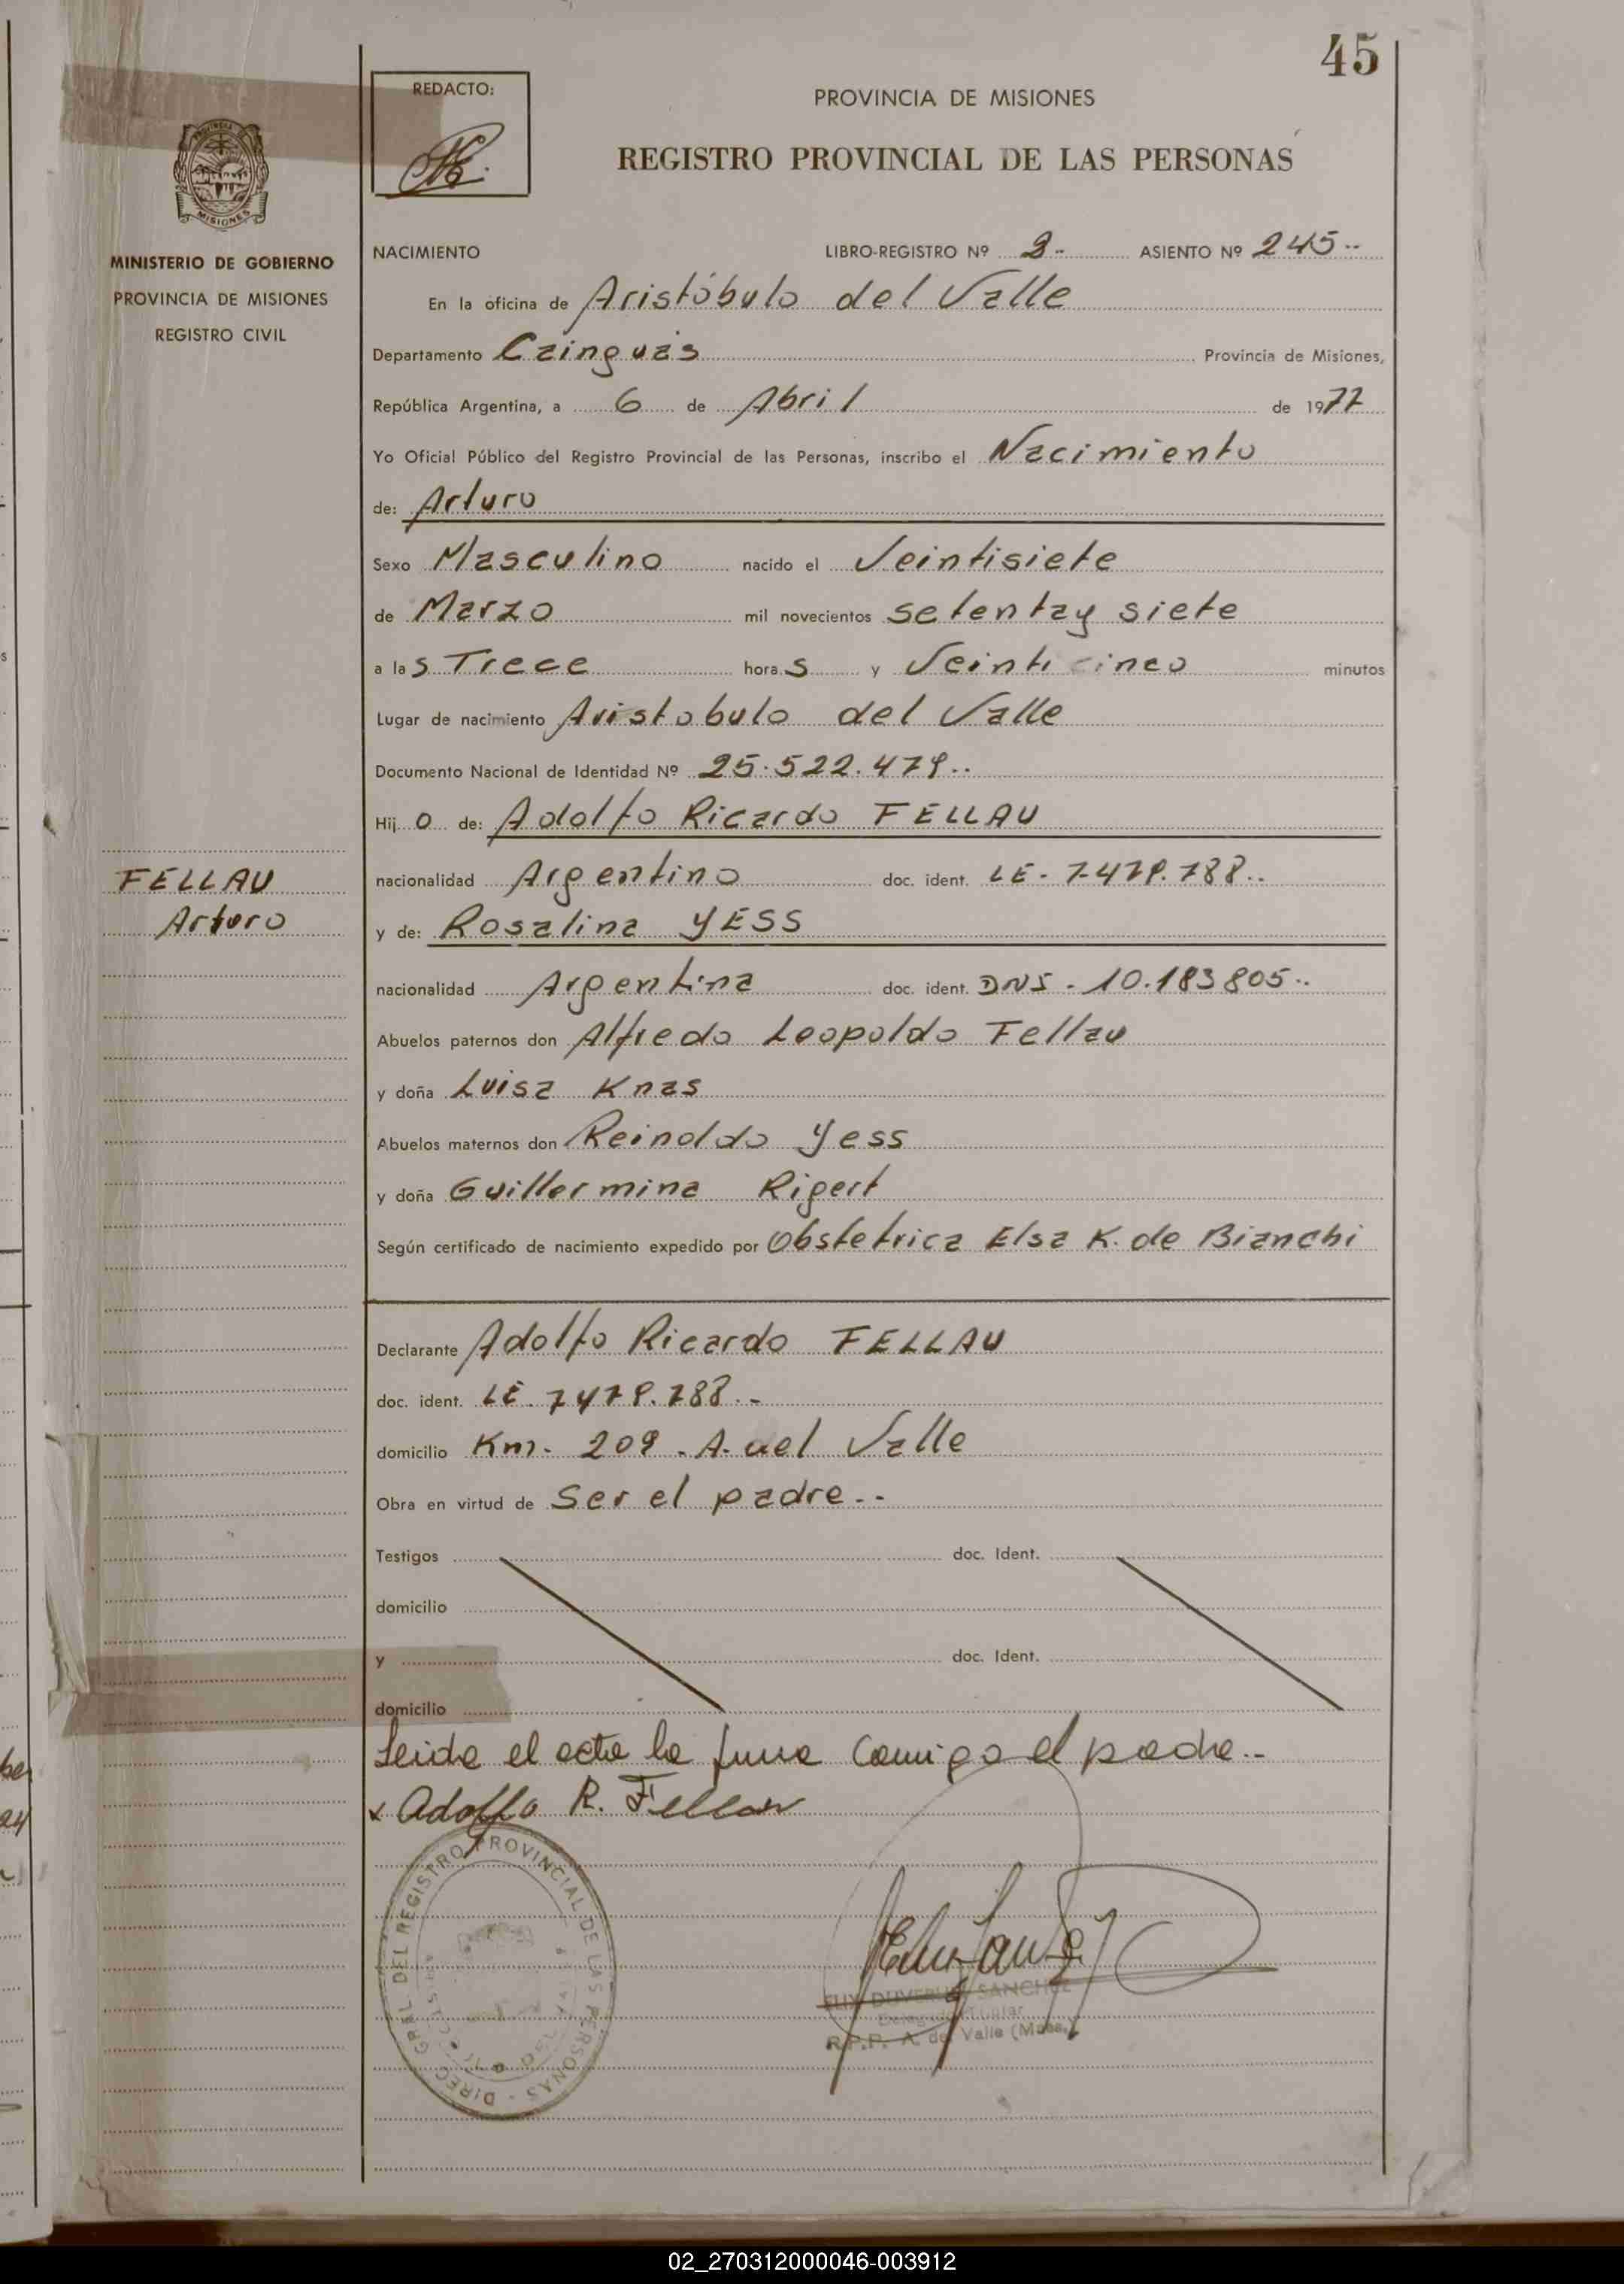 45
REDACTO:
PROVINCIA DE MISIONES
REGISTRO PROVINCIAL DE LAS PERSONAS
MISIONES
MINISTERIO DE GOBIERNO
PROVINCIA DE MISIONES
REGISTRO CIVIL
NACIMIENTO LIBRO-REGISTRO Nº 2- ASIENTO Nº 245--
En la oficina de Aristóbulo del Valle
Departamento Cainguás Provincia de Misiones,
República Argentina, a 6 de Abril de 1977
Yo Oficial Público del Registro Provincial de las Personas, inscribo el Nacimiento
de: Arturo
Sexo Masculino nacido el Veintisiete
de Marzo mil novecientos setenta y siete
a las Trece horas y Veinticinco minutos
Lugar de nacimiento Aristobulo del Valle
Documento Nacional de Identidad Nº 25.522.479--
Hijo de: Adolfo Ricardo FELLAU
FELLAU
Arturo
nacionalidad Argentino doc. ident. LE- 7.479.788--
y de: Rosalina YESS
nacionalidad Argentina doc. ident. DNI - 10.183805--
Abuelos paternos don Alfredo Leopoldo Fellau
y doña Luisa Knas
Abuelos maternos don Reinoldo Yess
y doña Guillermina Rigert
Según certificado de nacimiento expedido por Obstetrica Elsa K. de Bianchi
Declarante Adolfo Ricardo FELLAU
doc. ident. LE. 7479.788.-
domicilio Km. 209 . A. del Valle
Obra en virtud de Ser el padre--
Testigos doc. Ident.
domicilio
y doc. Ident.
domicilio
Leida el acta la firma conmigo el padre--
x Adolfo R. Fellau
DIREC. GRAL. DEL REGISTRO PROVINCIAL DE LAS PERSONAS
DUVERLI SANCHEZ
Delegado Titular
R.P.P. A. del Valle (Mnes.)
02_270312000046-003912